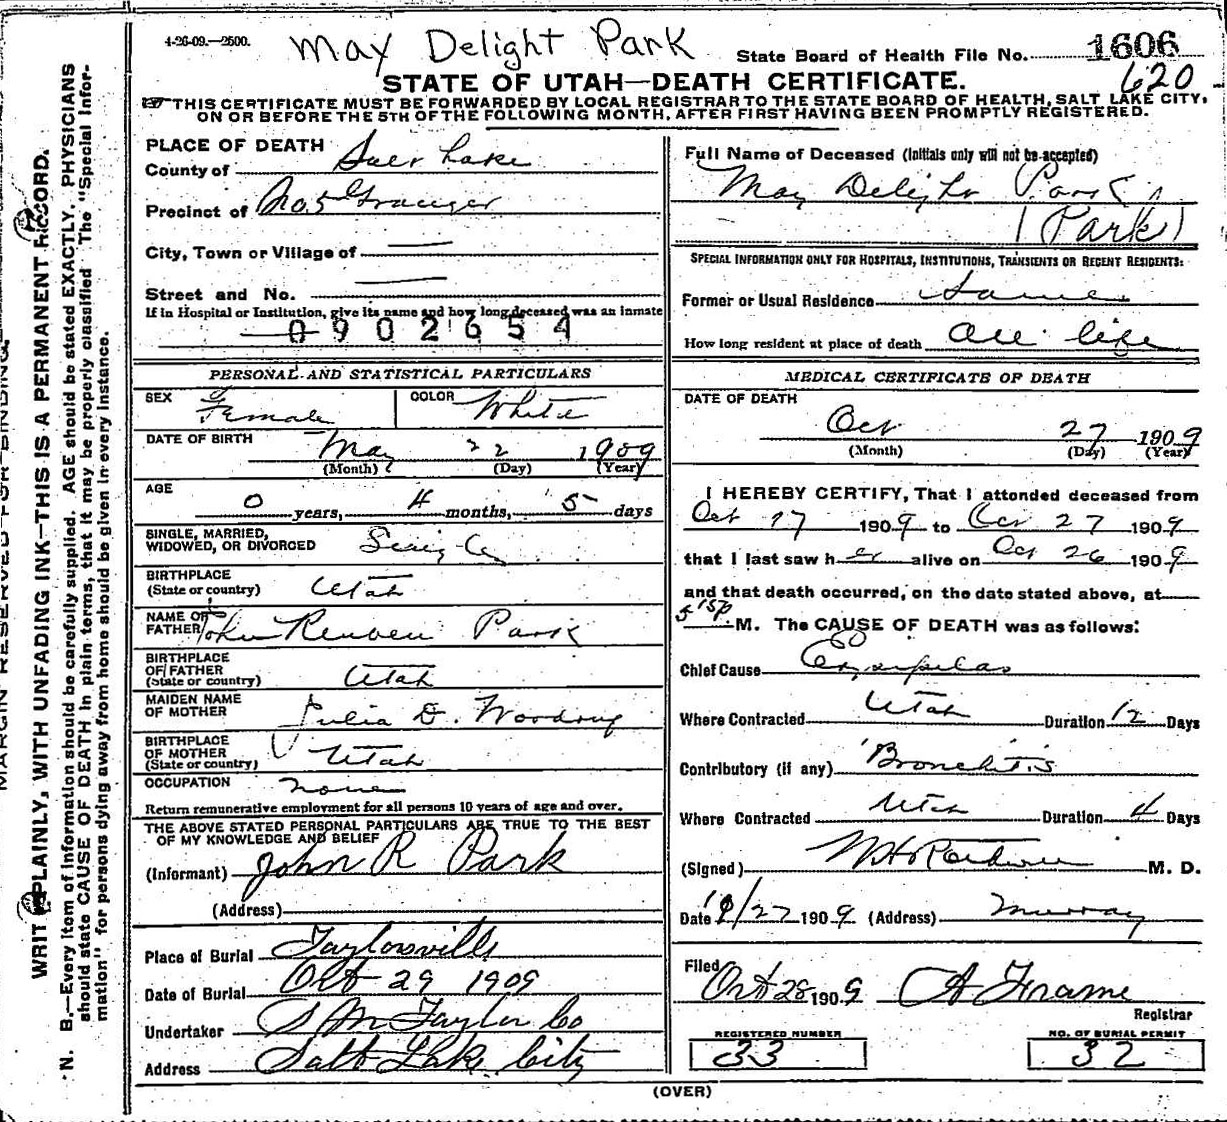 4-26-09.—2500.
May Delight Park
State Board of Health File No. 1606
620
STATE OF UTAH—DEATH CERTIFICATE.
THIS CERTIFICATE MUST BE FORWARDED BY LOCAL REGISTRAR TO THE STATE BOARD OF HEALTH, SALT LAKE CITY,
ON OR BEFORE THE 5TH OF THE FOLLOWING MONTH, AFTER FIRST HAVING BEEN PROMPTLY REGISTERED.
PLACE OF DEATH
County of Salt Lake
Precinct of No. 5 Granger
City, Town or Village of —
Street and No. —
If in Hospital or Institution, give its name and how long deceased was an inmate
0902654
PERSONAL AND STATISTICAL PARTICULARS
SEX Female
COLOR White
DATE OF BIRTH May 22 1909
(Month) (Day) (Year)
AGE 0 years, 4 months, 5 days
SINGLE, MARRIED,
WIDOWED, OR DIVORCED Single
BIRTHPLACE
(State or country) Utah
NAME OF
FATHER John Reuben Park
BIRTHPLACE
OF FATHER
(State or country) Utah
MAIDEN NAME
OF MOTHER Julia D. Woodruff
BIRTHPLACE
OF MOTHER
(State or country) Utah
OCCUPATION none
Return remunerative employment for all persons 10 years of age and over.
THE ABOVE STATED PERSONAL PARTICULARS ARE TRUE TO THE BEST
OF MY KNOWLEDGE AND BELIEF
(Informant) John R Park
(Address)
Place of Burial Taylorsville
Date of Burial Oct 29 1909
Undertaker S M Taylor Co
Address Salt Lake City
Full Name of Deceased (Initials only will not be accepted)
May Delight Park
(Park)
SPECIAL INFORMATION ONLY FOR HOSPITALS, INSTITUTIONS, TRANSIENTS OR RECENT RESIDENTS:
Former or Usual Residence Same
How long resident at place of death all life
MEDICAL CERTIFICATE OF DEATH
DATE OF DEATH
Oct 27 1909
(Month) (Day) (Year)
I HEREBY CERTIFY, That I attonded deceased from
Oct 17 1909 to Oct 27 1909
that I last saw her alive on Oct 26 1909
and that death occurred, on the date stated above, at
5 15 p M. The CAUSE OF DEATH was as follows:
Chief Cause Erysipelas
Where Contracted Utah Duration 12 Days
Contributory (if any) Bronchitis
Where Contracted Utah Duration 4 Days
(Signed) M. D.
Date 10/27 1909 (Address) Murray
Filed Oct 28 1909 A Frame
Registrar
REGISTERED NUMBER
33
NO. OF BURIAL PERMIT
32
(OVER)
MARGIN RESERVED FOR BINDING.
WRITE PLAINLY, WITH UNFADING INK—THIS IS A PERMANENT RECORD.
N. B.—Every item of information should be carefully supplied. AGE should be stated EXACTLY. PHYSICIANS
should state CAUSE OF DEATH in plain terms, that it may be properly classified. The "Special Infor-
mation" for persons dying away from home should be given in every instance.